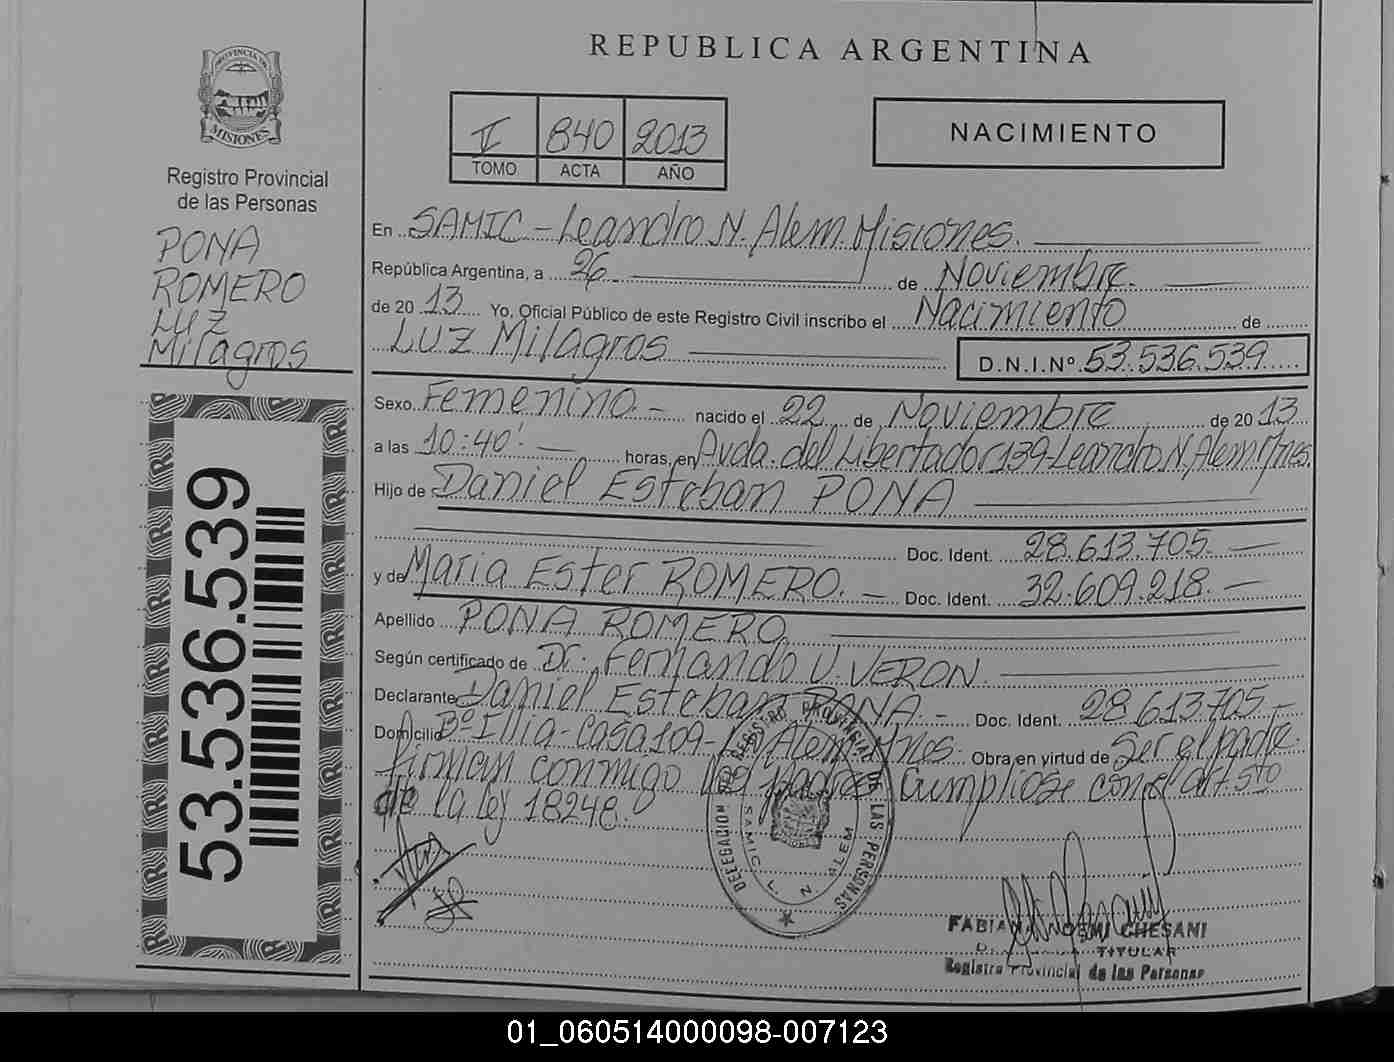 REPUBLICA ARGENTINA
PROVINCIA DE
MISIONES
Registro Provincial
de las Personas
PONA
ROMERO
LUZ
Milagros
53.536.539
II 840 2013
TOMO ACTA AÑO
NACIMIENTO
En SAMIC - Leandro N. Alem Misiones.
República Argentina, a 26 de Noviembre.
de 20 13 Yo, Oficial Público de este Registro Civil inscribo el Nacimiento de
LUZ Milagros D.N.I.Nº 53.536.539
Sexo Femenino. - nacido el 22 de Noviembre de 20 13
a las 10:40'. horas, en Avda. del Libertador 139-Leandro N. Alem Mnes.
Hijo de Daniel Esteban PONA
Doc. Ident. 28.613.705.
y de Maria Ester ROMERO. Doc. Ident. 32.609.218.
Apellido PONA ROMERO
Según certificado de Dr. Fernando V. VERON.
Declarante Daniel Esteban PONA - Doc. Ident. 28.613.705 -
Domicilio Bº Illia - Casa 109 - L.N. Alem Mnes. Obra en virtud de Ser el padre.
Firman conmigo los padres Cumpliose con el art. 5to
de la ley 18248.
DELEGACION DEL REGISTRO PROVINCIAL DE LAS PERSONAS
SAMIC L. N. ALEM
NOEMI CHESANI
TITULAR
Registro Provincial de las Personas
01_060514000098-007123